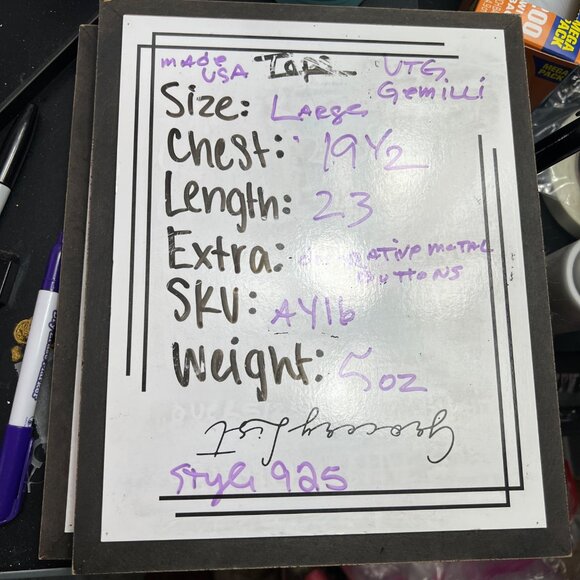 made USA Tops VTG Gemilli
Size: Large
Chest: 19 1/2
Length: 23
Extra: native metal buttons
SKU: AY16
Weight: 5oz
Grocery List
Style 925
100
MEGA PACK
MEGA PACK